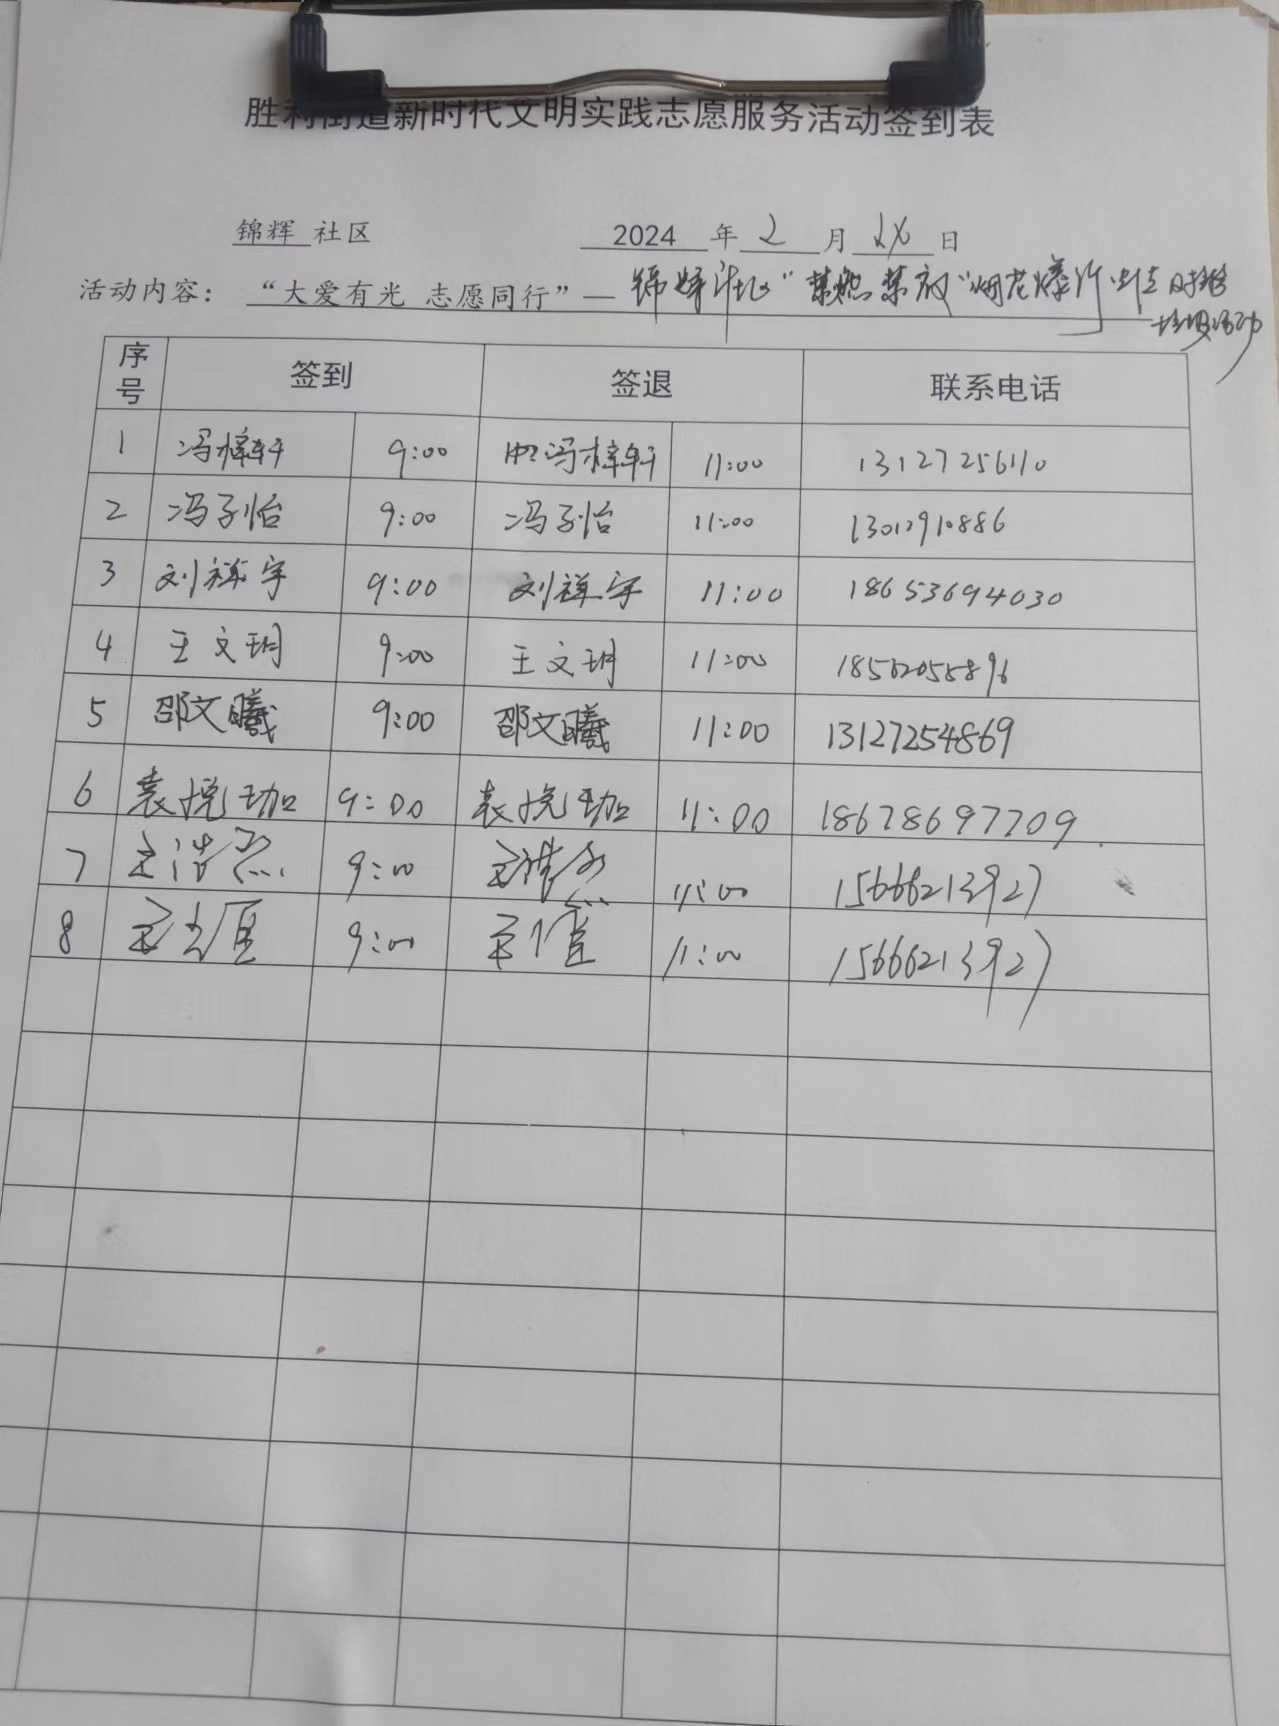 胜利街道新时代文明实践志愿服务活动签到表
锦辉 社区 2024 年 2 月 日
活动内容： “大爱有光 志愿同行”— 锦辉社区“禁燃禁放”烟花爆竹
垃圾活动
序号 签到 签退 联系电话
1 冯梓轩 9:00 冯梓轩 11:00 13127256110
2 冯子怡 9:00 冯子怡 11:00
3 刘祥宇 9:00 刘祥宇 11:00 18653694030
4 王文玥 9:00 王文玥 11:00
5 邵文曦 9:00 邵文曦 11:00 13127254869
6 袁悦珈 9:00 袁悦珈 11:00 18678697709
7 9:00 11:00 15666213927
8 9:00 11:00 15666213927